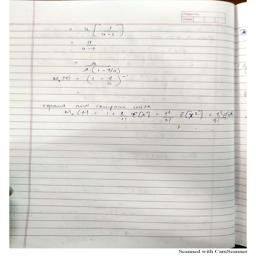 = a [ 1 / a - t ]
= a / a - t
= a / a (1 - t/a)
Mx (t) = (1 - t/a)⁻¹
expand and compare with
Mx (t) = 1 + t/1! E[x] + t²/2! E[x²] +
Scanned with CamScanner